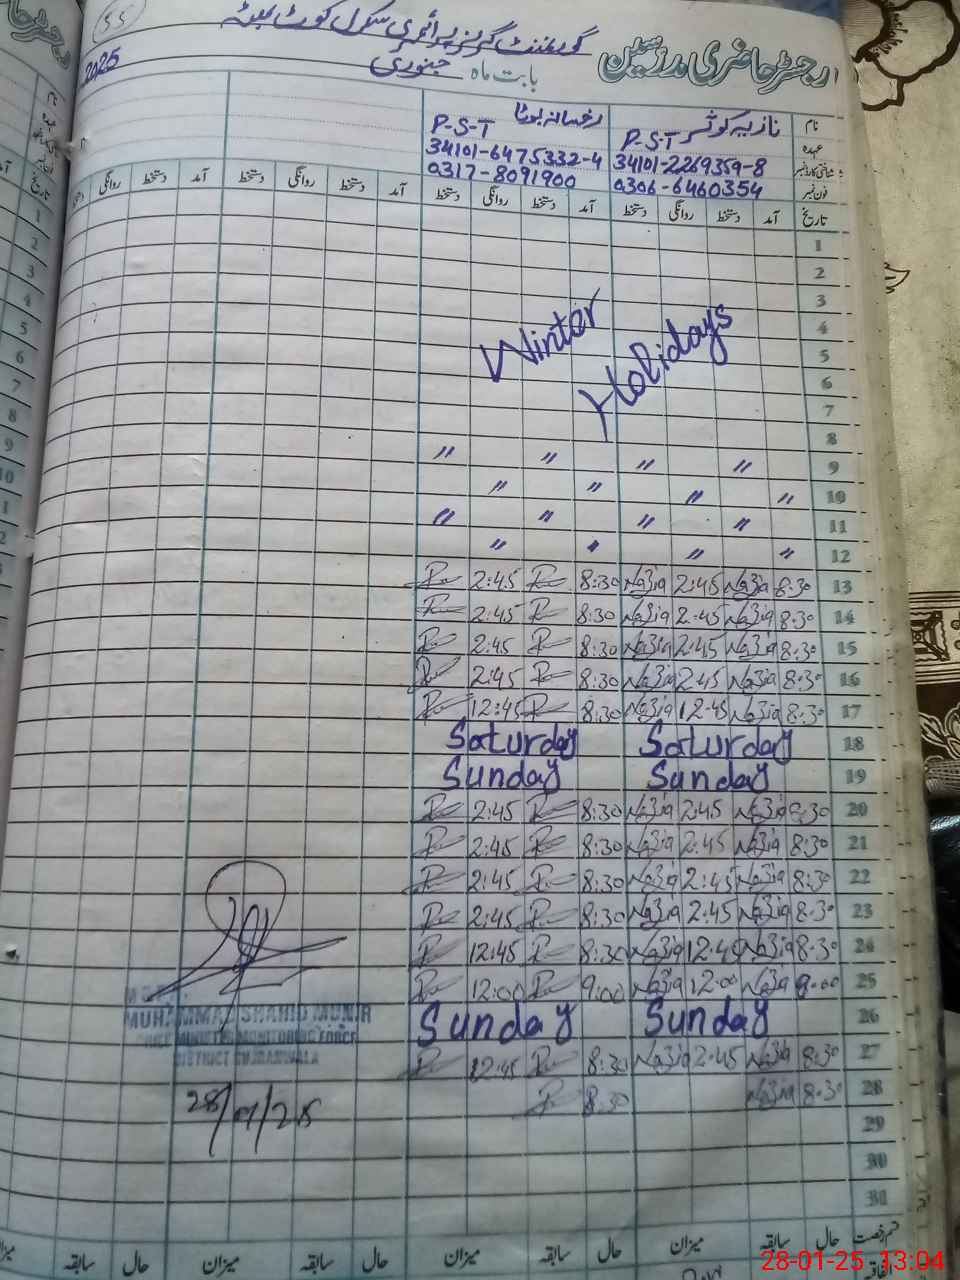 55
رجسٹر حاضری مدرسین گورنمنٹ گرلز پرائمری سکول کوٹ
بابت ماہ جنوری 2025
نام نازیہ کوثر رخسانہ بوٹا
عہدہ P-S-T P-S-T
شناختی کارڈ نمبر 34101-2269359-8 34101-6475332-4
فون نمبر 0306-6460354 0317-8091900
تاریخ آمد دستخط روانگی دستخط آمد دستخط روانگی دستخط آمد دستخط روانگی دستخط آمد دستخط روانگی
1
2
3
4
5
6
7
8
Winter Holidays
9 〃 〃 〃 〃
10 〃 〃 〃 〃
11 〃 〃 〃 〃
12 〃 〃 〃 〃
13 8:30 Nazia 2:45 Nazia 8:30 2:45
14 8:30 Nazia 2:45 Nazia 8:30 2:45
15 8:30 Nazia 2:45 Nazia 8:30 2:45
16 8:30 Nazia 2:45 Nazia 8:30 2:45
17 8:30 Nazia 12:45 Nazia 8:30 12:45
18 Saturday Saturday
19 Sunday Sunday
20 8:30 Nazia 2:45 Nazia 8:30 2:45
21 8:30 Nazia 2:45 Nazia 8:30 2:45
22 8:30 Nazia 2:45 Nazia 8:30 2:45
23 8:30 Nazia 2:45 Nazia 8:30 2:45
24 8:30 Nazia 12:45 Nazia 8:30 12:45
25 9:00 Nazia 12:00 Nazia 9:00 12:00
26 Sunday Sunday
27 8:30 Nazia 2:45 Nazia 8:30
28 8:30 Nazia 8:30
29
30
31
MUHAMMAD SHAHID MUNIR
CHIEF MINISTER MONITORING FORCE
DISTRICT GUJRANWALA
28/01/25
قسم رخصت حال سابقہ میزان حال سابقہ میزان حال سابقہ میزان حال سابقہ میزان
28-01-25 13:04